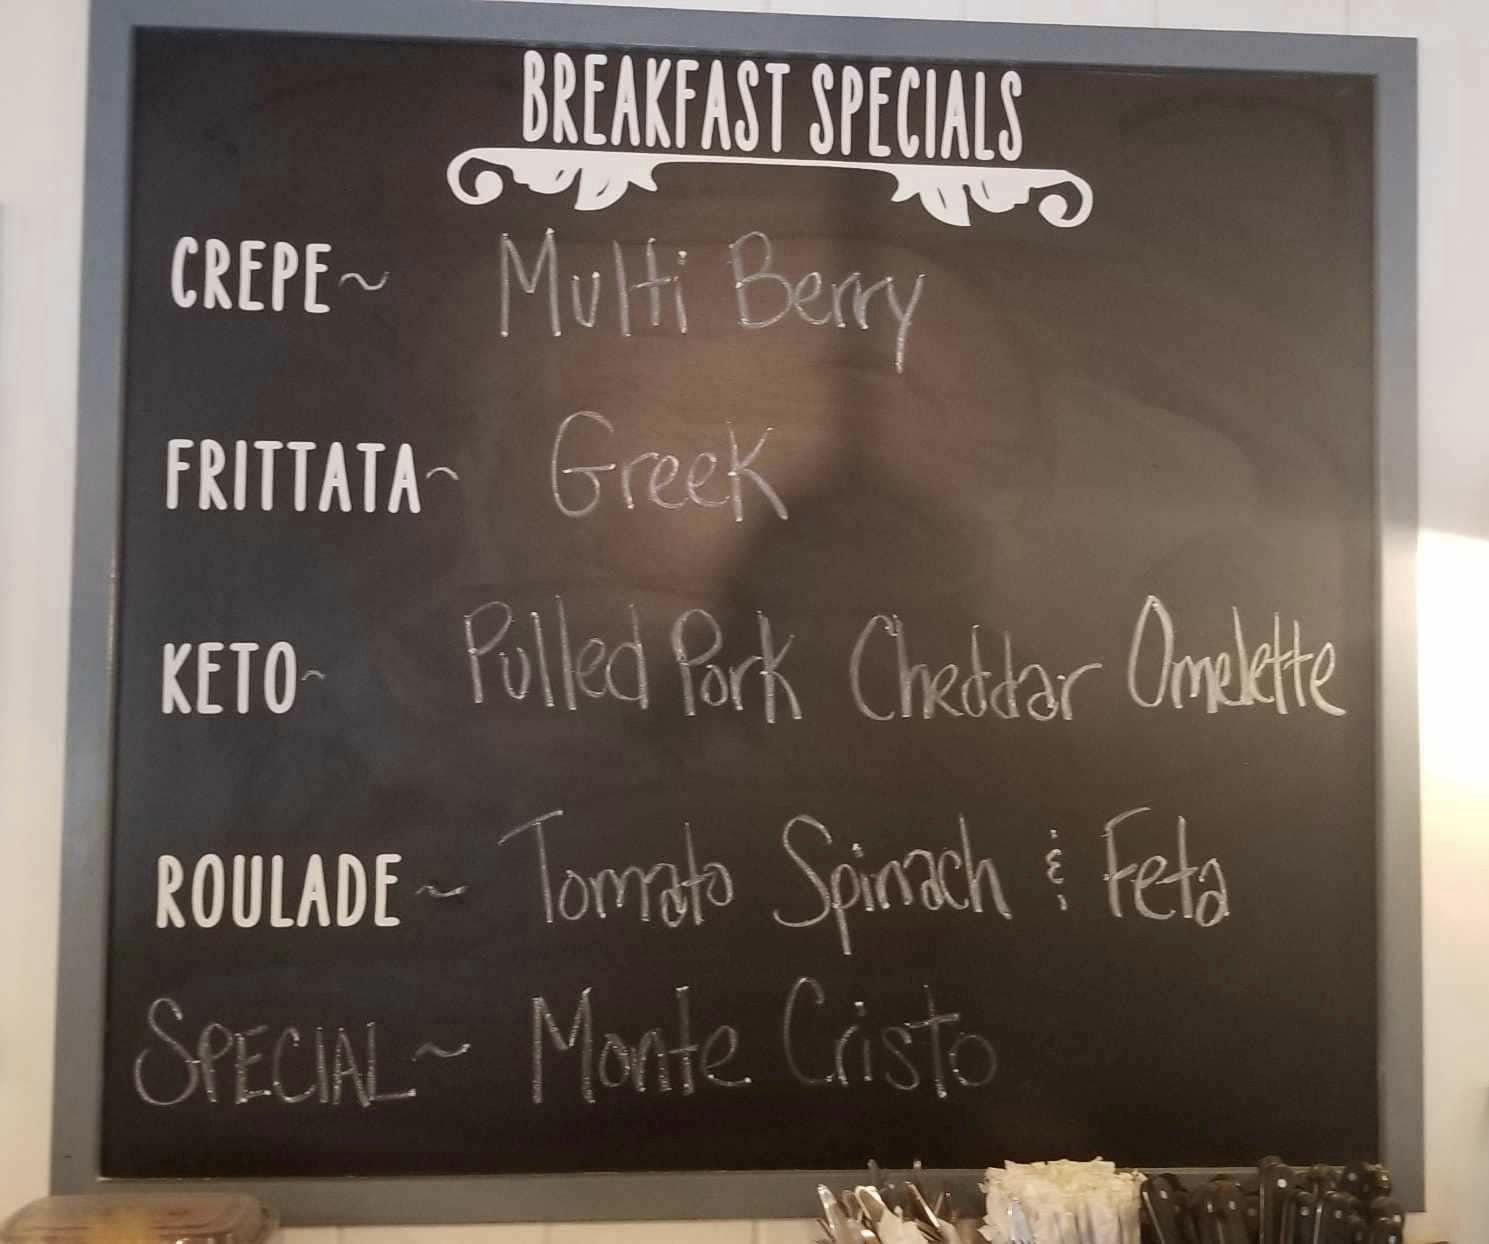 BREAKFAST SPECIALS
CREPE~ Multi Berry
FRITTATA~ Greek
KETO~ Pulled Pork Cheddar Omelette
ROULADE~ Tomato Spinach & Feta
SPECIAL~ Monte Cristo